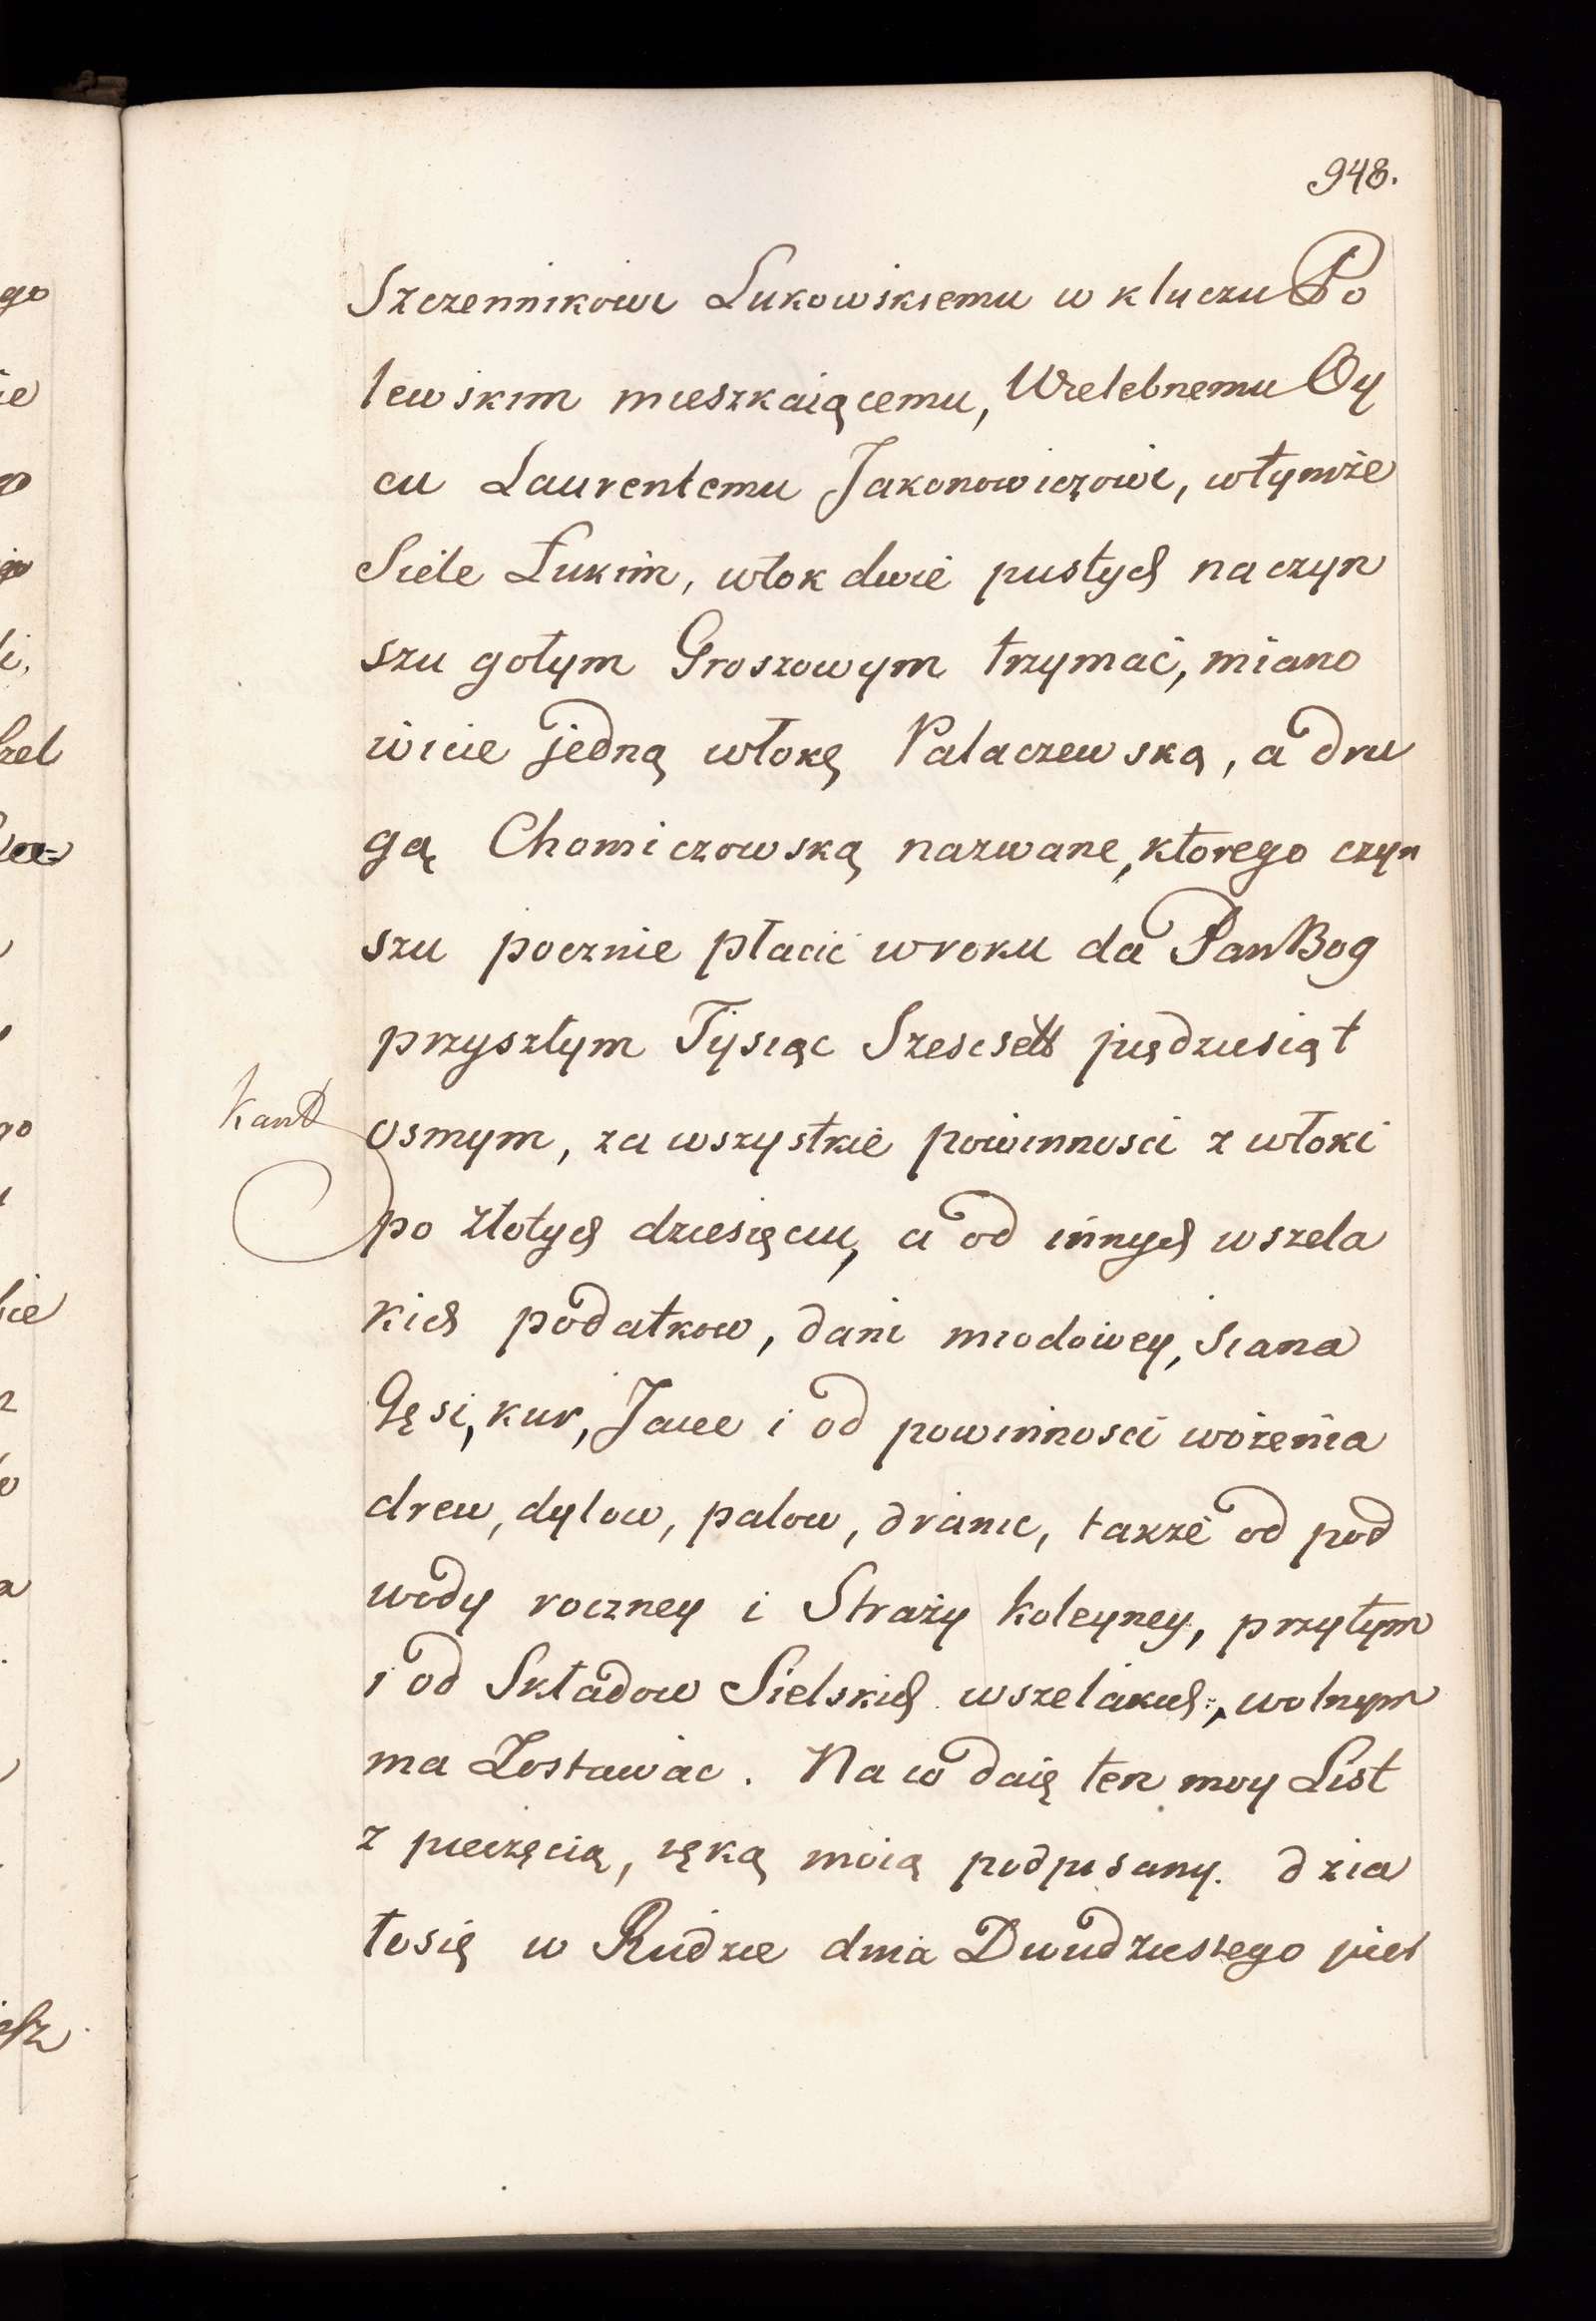 948.
Szczennikowi Lukowskiemu w kluczu Po
lewskim mieszkaiącemu, Wielebnemu Oy
cu Laurentemu Jakonowiczowi, wtymże
Siele Łukim, włok dwie pustych na czyn
szu gołym Groszowym trzymać, miano
wicie jedną włokę Palaczewską, a dru
gą Chomiczowską nazwane, ktorego czyn
szu pocznie płacić w roku da Pan Bog
przyszłym Tysiąc Szescset piędziesiąt
osmym, za wszystkie powinnosci z włoki
po złotych dziesięciu, a od innych wszela
kich podatkow, dani miodowey, siana
Gęsi, kur, Jaiec i od powinnosci wożenia
drew, dylow, palow, dranic, także od pod
wody roczney i Straży koleyney, przytym
i od Składow Sielskich wszelakich, wolnym
ma Zostawac. Na co daię ten moy List
z pieczęcią, ręką moią podpisany. dzia
łosię w Rudzie dnia Dwudziestego pier